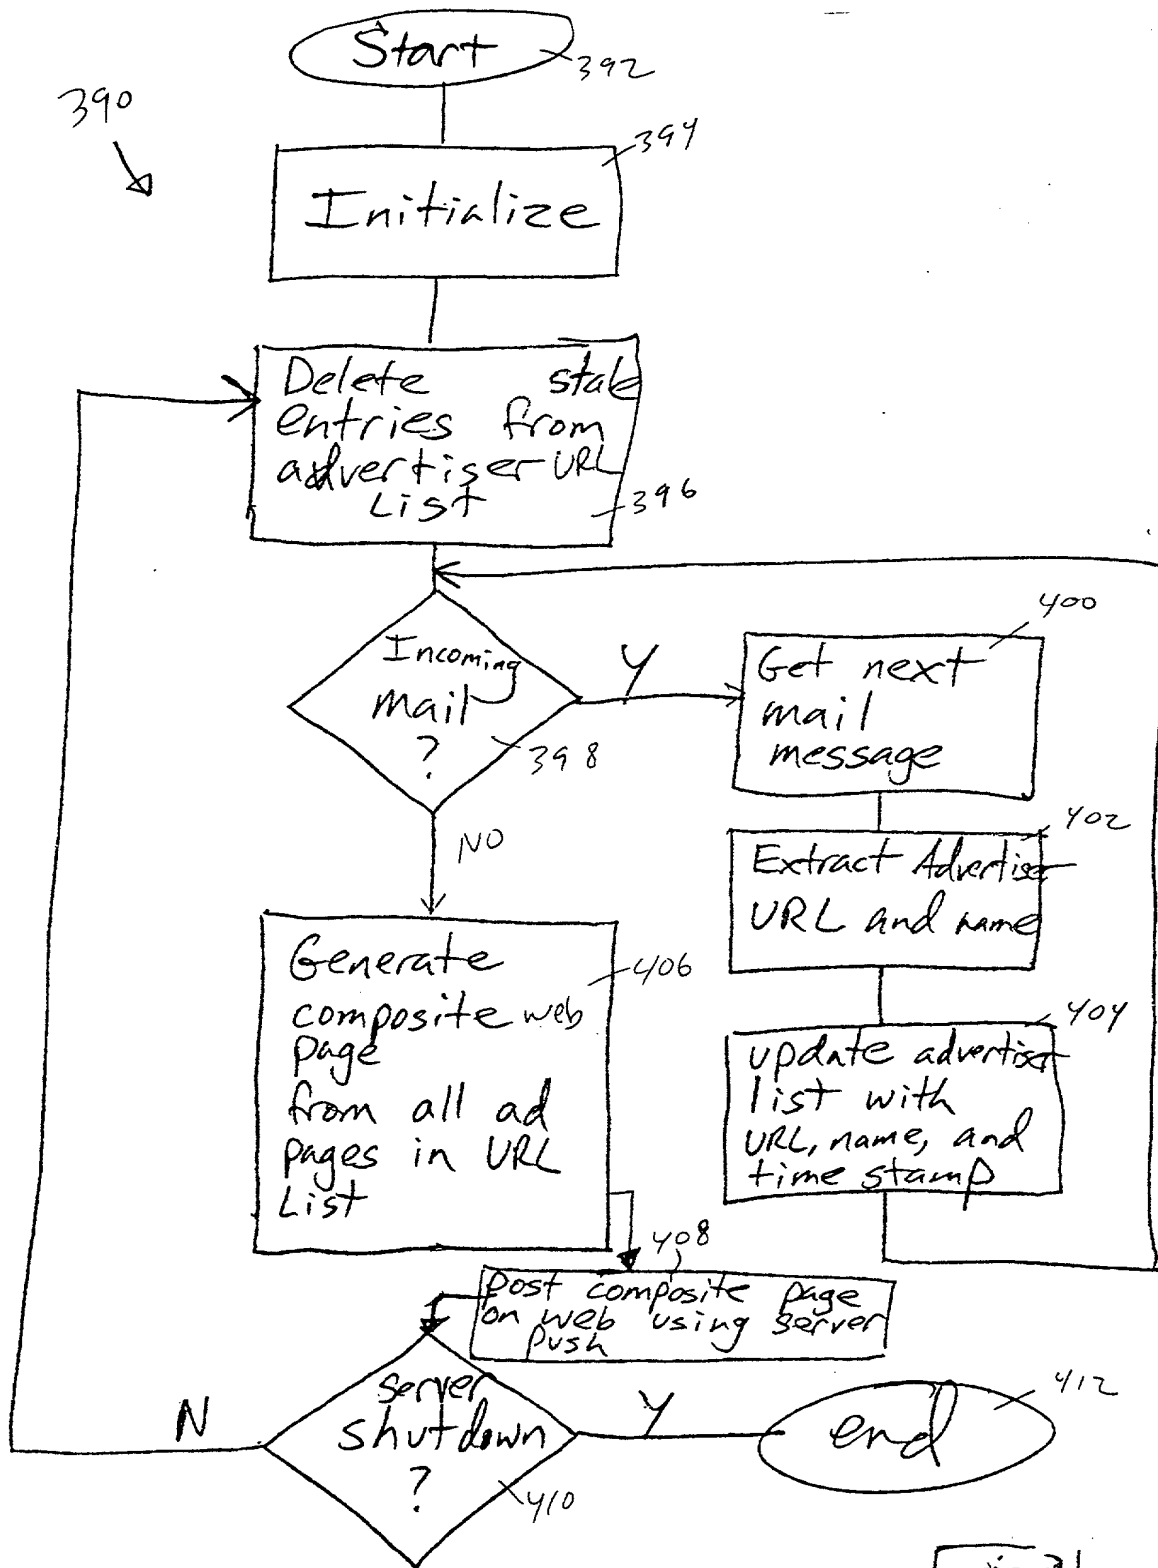 Start
392
390
394
Initialize
Delete stale
entries from
advertiser URL
List
396
Incoming
mail
?
398
Y
400
Get next
mail
message
402
Extract Advertiser
URL and name
404
update advertiser
list with
URL, name, and
time stamp
NO
Generate
composite web
page
from all ad
pages in URL
List
406
408
Post composite page
on web using server
push
server
shutdown
?
410
N
Y
end
412